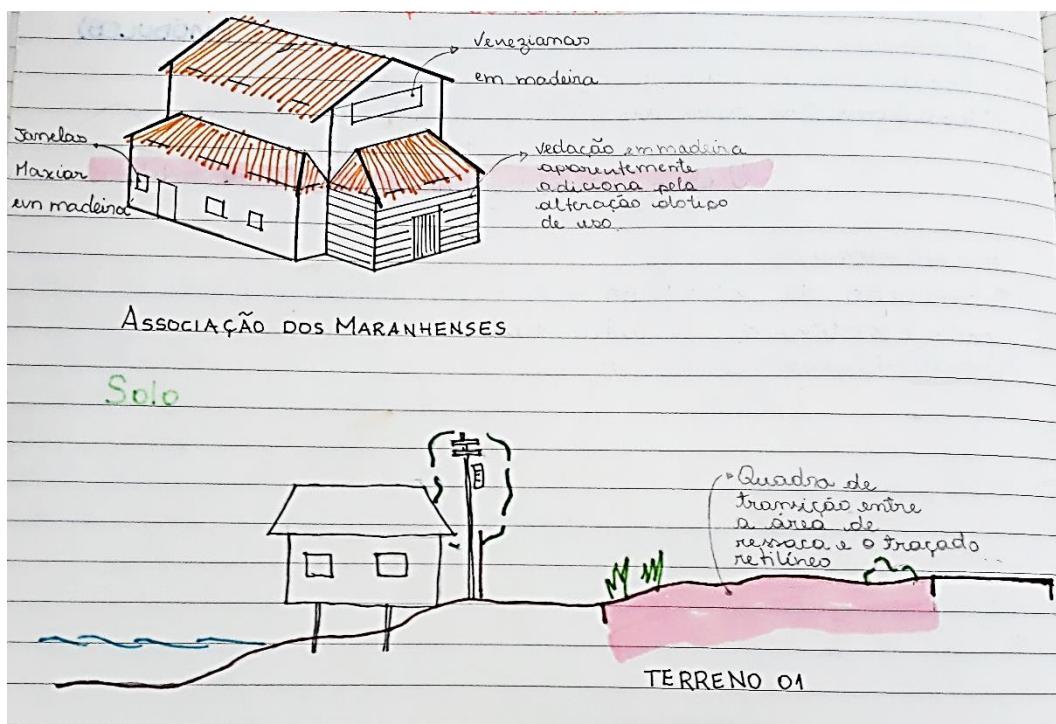 Venezianas
em madeira
Janelas
Maxiar
em madeira
vedação em madeira
aparentemente
adiciona pela
alteração do tipo
de uso
ASSOCIAÇÃO DOS MARANHENSES
Solo
Quadra de
transição entre
a área de
ressaca e o traçado
retilíneo
TERRENO 01